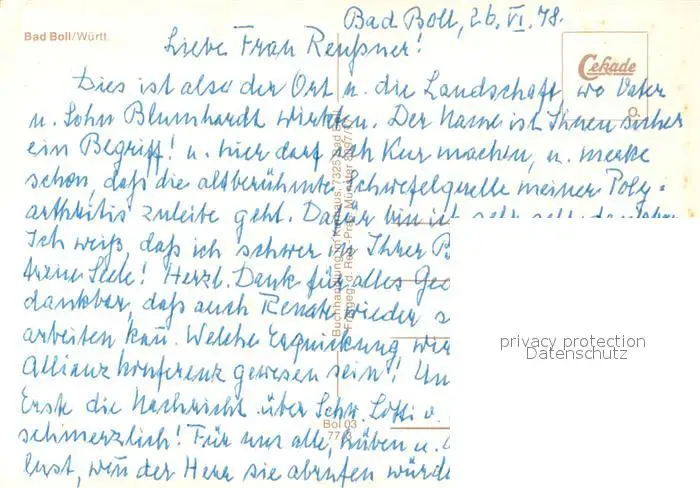 Bad Boll, 26. VI. 78.
Bad Boll/Württ.
Liebe Frau Reußner!
Cekade
Dies ist also der Ort u. die Landschaft, wo Vater
u. Sohn Blumhardt wirkten. Der Name ist Ihnen sicher
ein Begriff! u. hier darf ich Kur machen, u. merke
schon, daß die altberühmte Schwefelquelle meiner Poly-
arthritis zuleibe geht. Dafür bin ich sehr, sehr dankbar
Ich weiß, daß ich schwer in Ihrer
Seele! Herzl. Dank für alles
dankbar, daß auch Renate wieder
arbeiten kann. Welche Erquickung
Allianzkonferenz gewesen sein!
Erste die Nachricht über Schw. Lotti v.
schmerzlich! Für uns alle, hüben u.
lust, wenn der Herr sie abrufen würde
Bol 03
privacy protection
Datenschutz